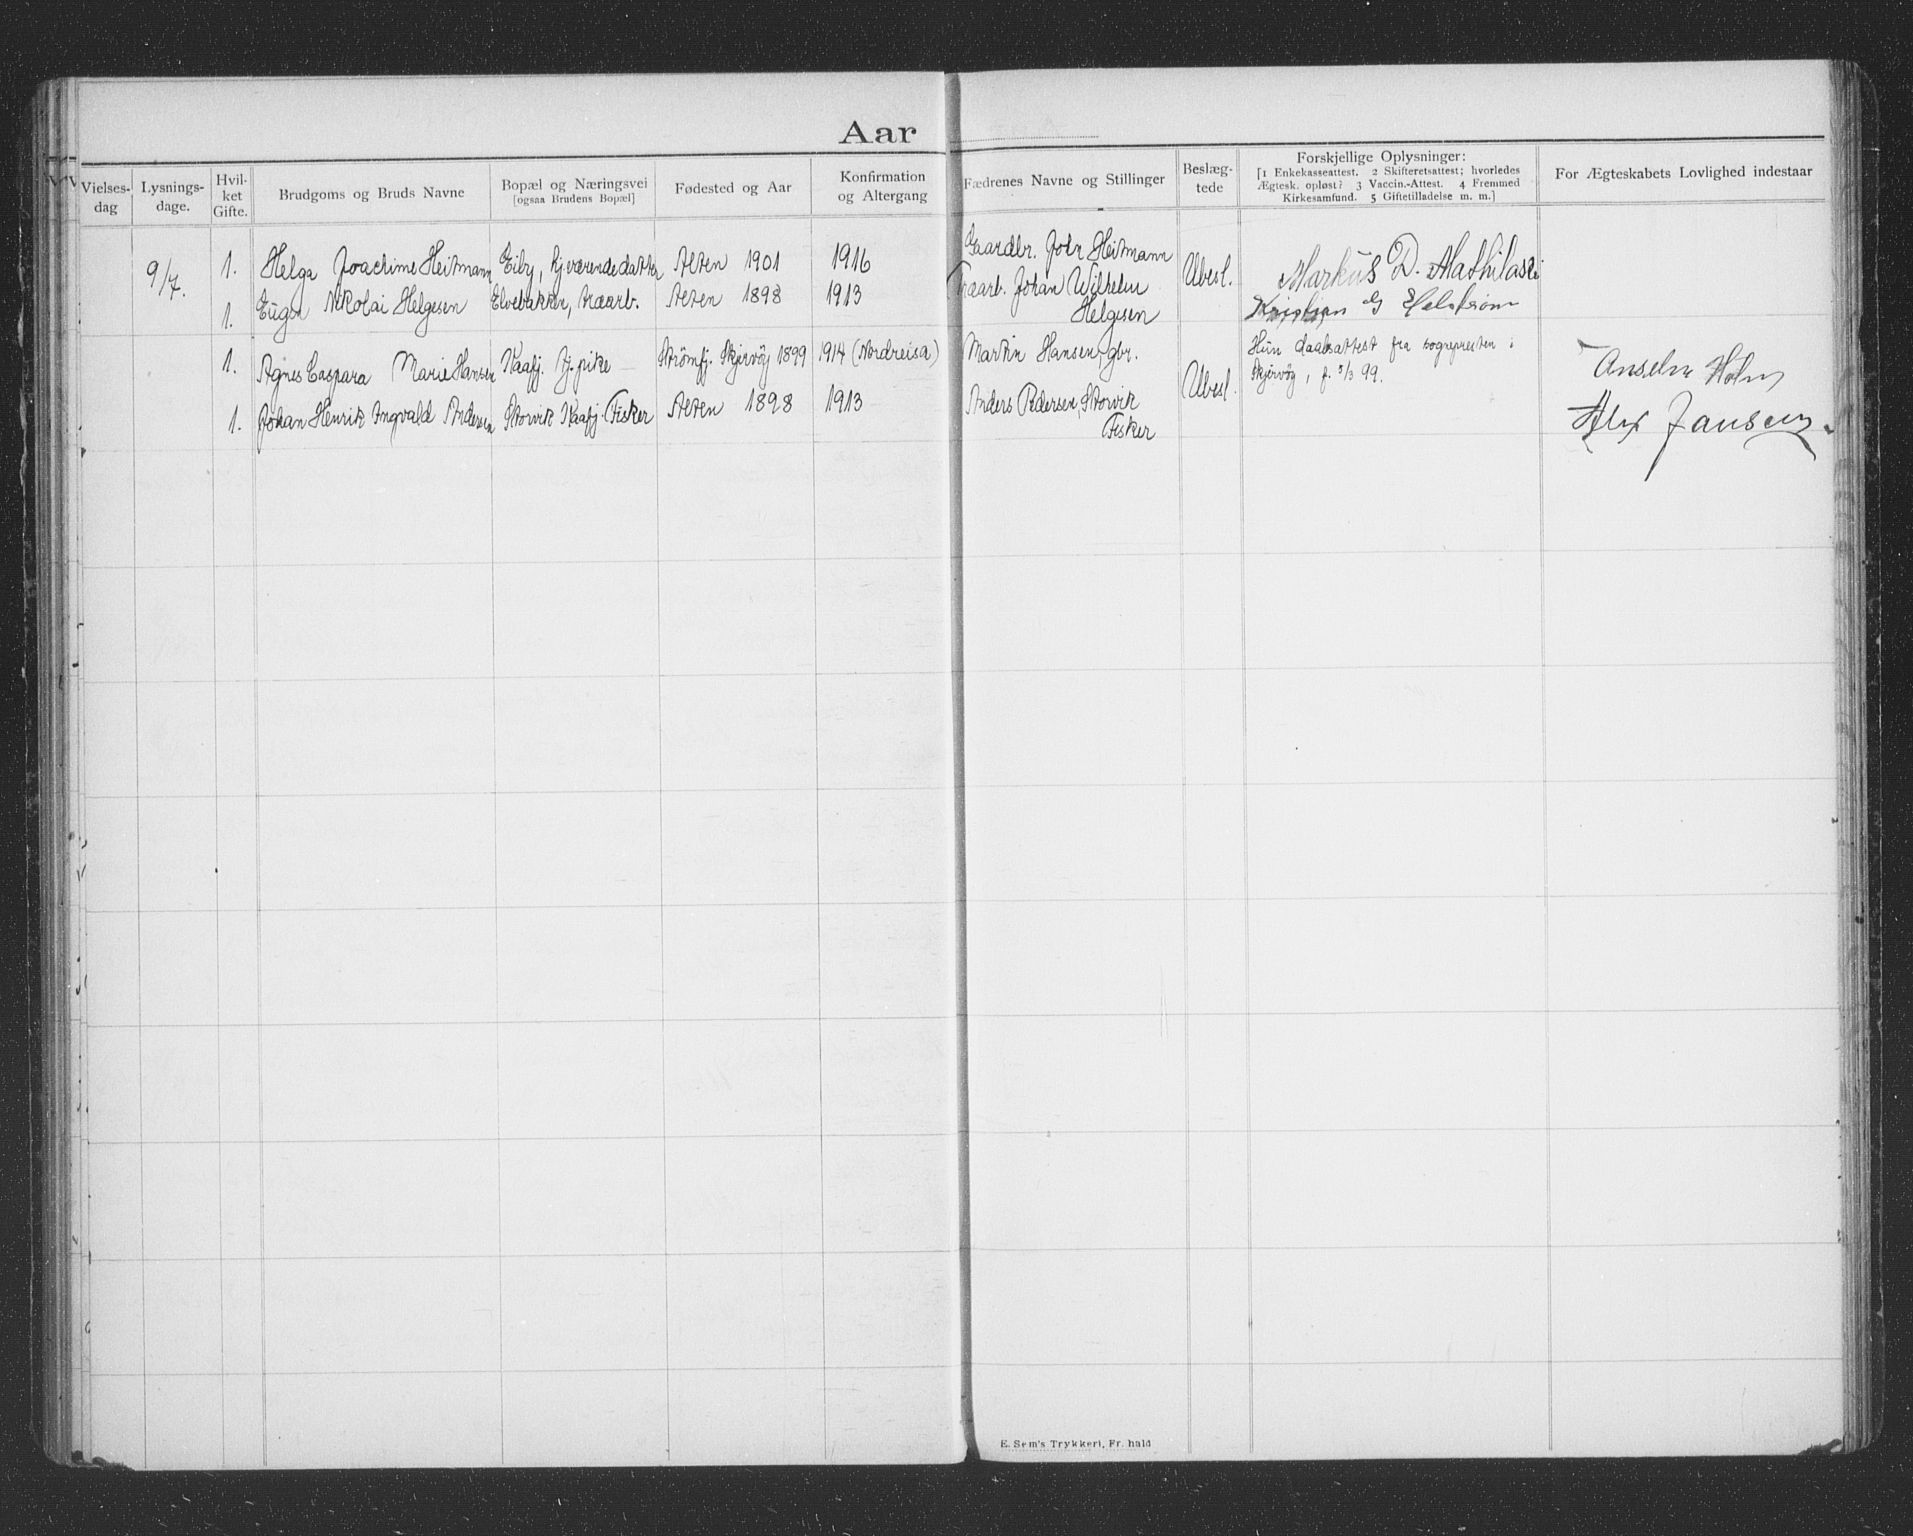 Aar
Vielses-
dag
Lysnings-
dage.
Hvil-
ket
Gifte.
Brudgoms og Bruds Navne
Bopæl og Næringsvei
[ogsaa Brudens Bopæl]
Fødested og Aar
Konfirmation
og Altergang
Fædrenes Navne og Stillinger
Beslæg-
tede
Forskjellige Oplysninger:
[1 Enkekasseattest. 2 Skifteretsattest; hvorledes
Ægtesk. opløst? 3 Vaccin.-Attest. 4 Fremmed
Kirkesamfund. 5 Giftetilladelse m. m.]
For Ægteskabets Lovlighed indestaar
9/7. 1. Helga Joachime Heitmann Eiby, hj.værende datter Alten 1901 1916 Gaardbr. John Heitmann Ubesl. Markus D. Mathilassi
1. Eugen Nikolai Helgesen Elvebakken, traarb. Alten 1898 1913 Traarb. Johan Wilhelm Kristian G Helstrøm
Helgesen
1. Agnes Caspara Marie Hansen Kaafj. Tj. pike Strömfj. Skjervöy 1899 1914 (Nordreisa) Martin Hansen, gbr. Ubesl. Hun daabsattest fra sognepresten i
Skjervöy, f. 5/3 99.
Anselm Holm
1. Johan Henrik Ingvald Andersen Storvik Kaafj. Fisker Alten 1898 1913 Anders Pedersen, Storvik
Fisker
Alex Jansen
E. Sem's Trykkeri, Fr.hald